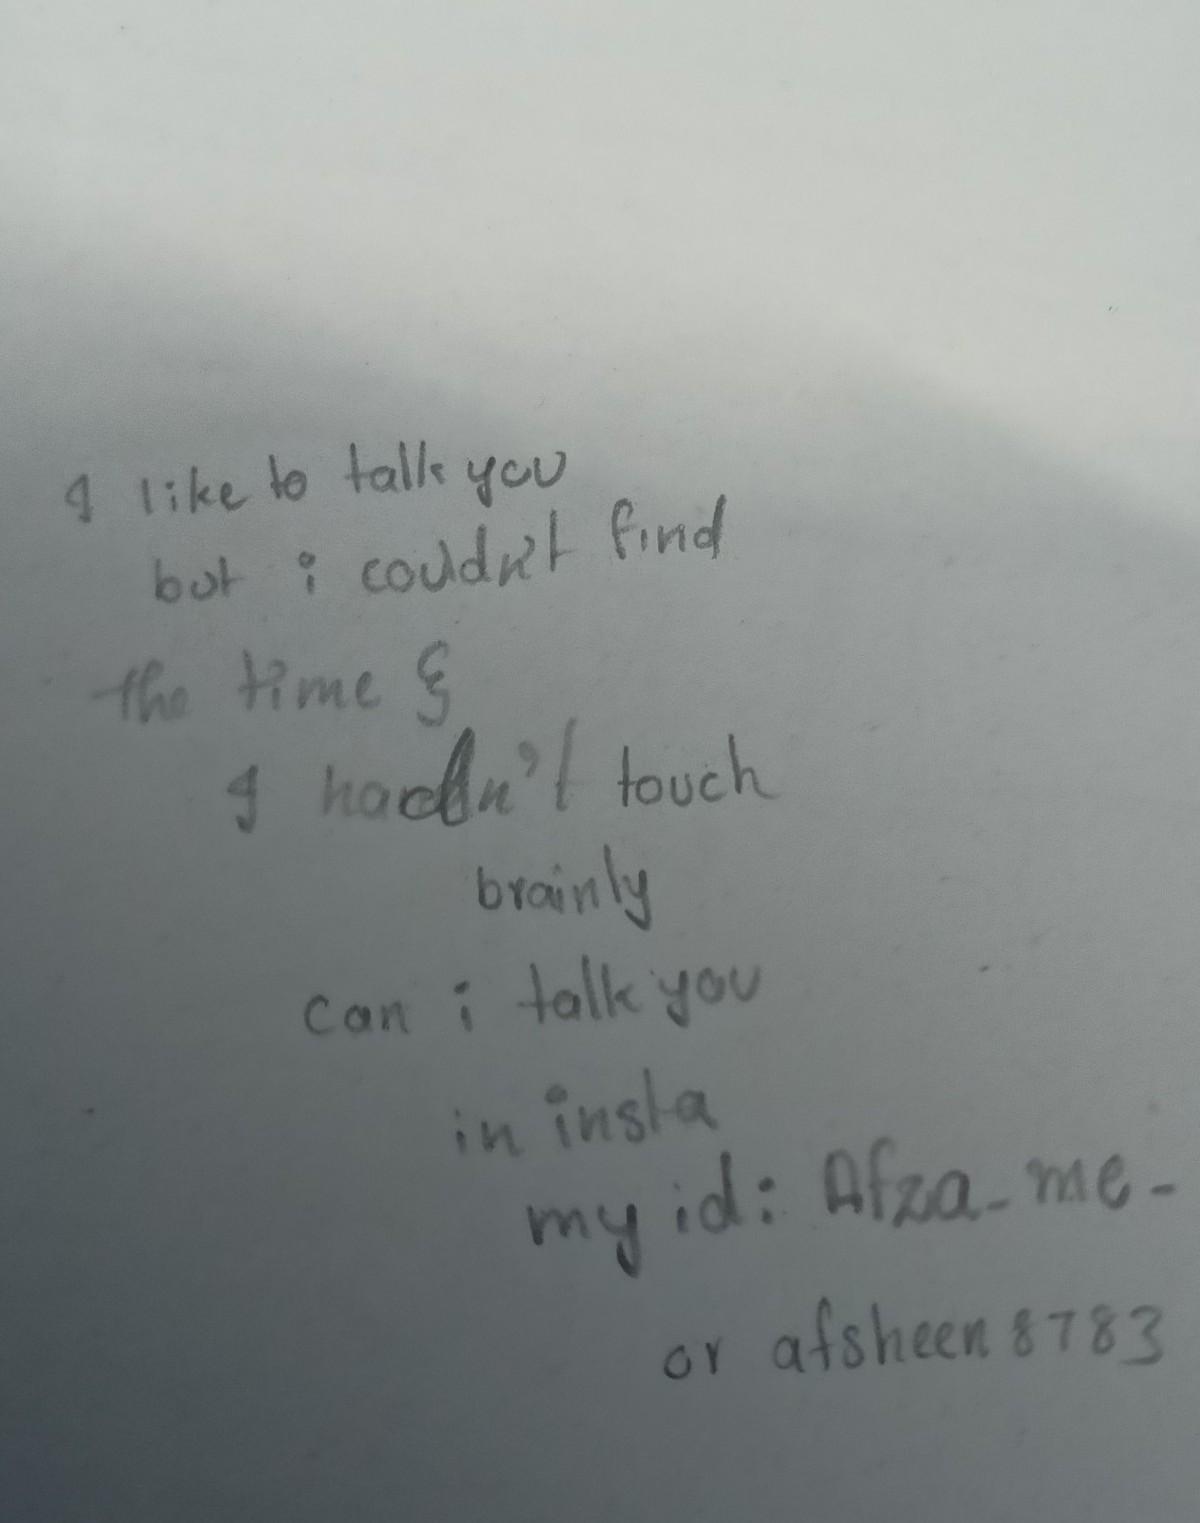 I like to talk you
but i couldn't find
the time &
I hadn't touch
brainly
can i talk you
in insta
my id: Afza_me_
or afsheen8783